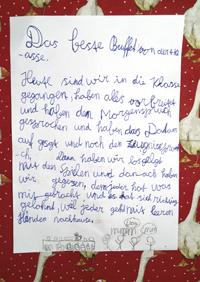 Das beste Buffet von der 4 Kl
-asse.
Heute sind wir in die Klasse
gegangen, haben alles vorbereitet
und haben den Morgenspruch
gesprochen und haben das Datum
auf gesagt und noch den Zeugnisspru
-ch, dann haben wir losgelegt
mit den Spielen und danach haben
wir gegessen, denn jeder hat was
mit gebracht und es hat sich riesig
gelohnt, weil jeder geht mit leeren
Händen nachhause.
mmm